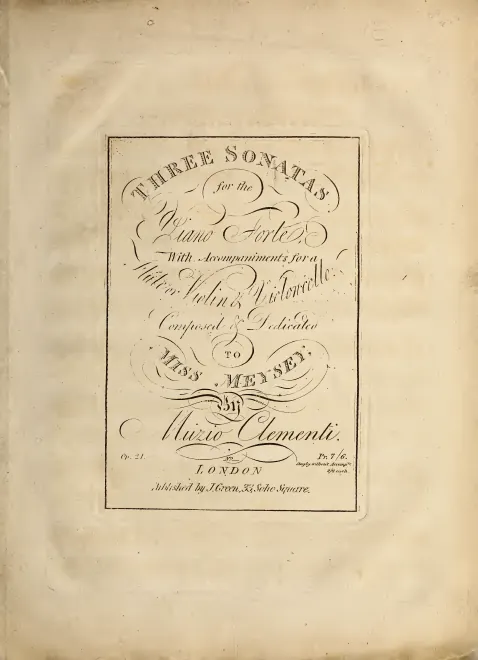 THREE SONATAS
for the
Piano Forte,
With Accompaniments for a
Flute or Violin & Violoncello.
Composed & Dedicated
TO
MISS MEYSEY,
By
Muzio Clementi.
Op. 21.
Pr. 7/6.
Singly without Accomp.ts
LONDON
Published by J. Green, 33, Soho Square.